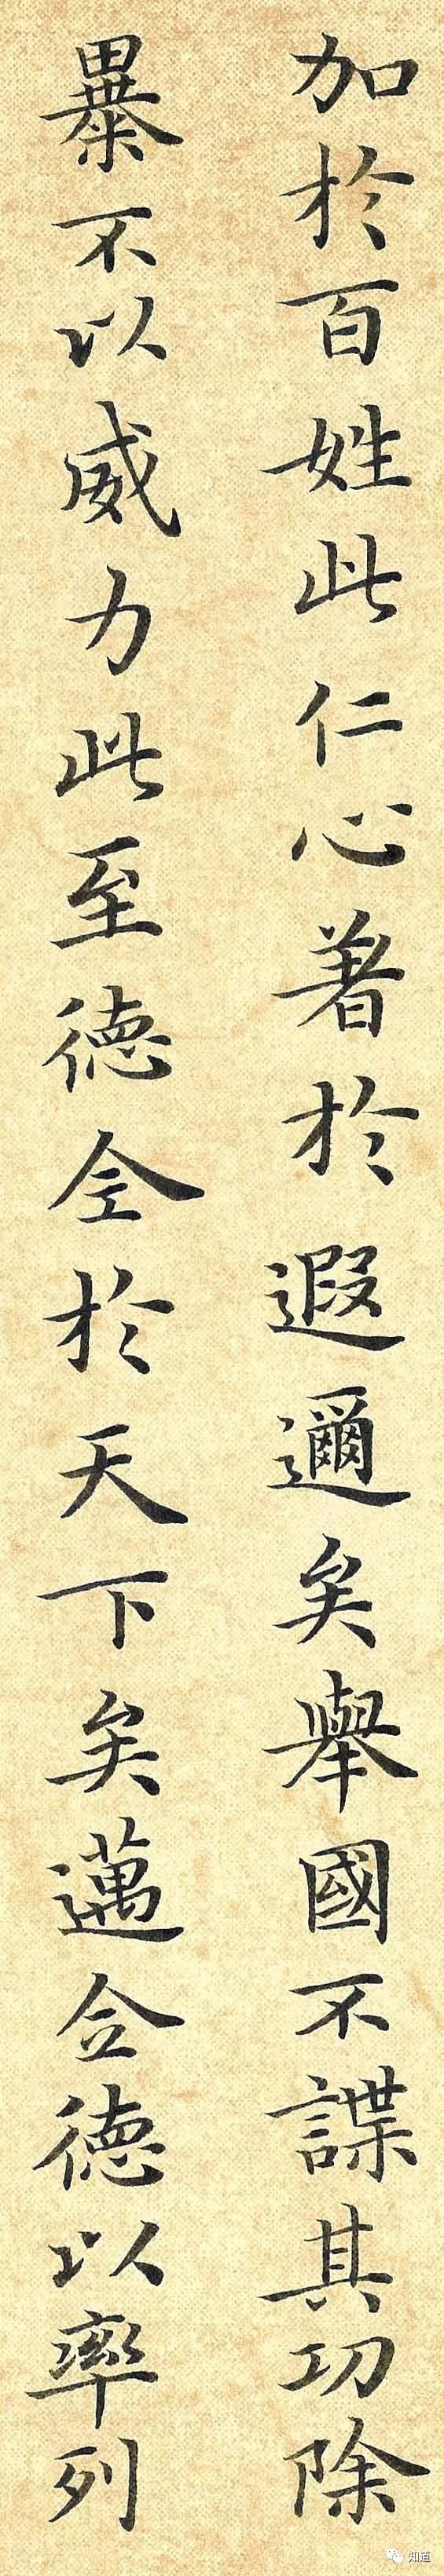 加於百姓此仁心著於遐邇矣舉國不諜其功除
暴不以威力此至德全於天下矣邁全德以率列
知道